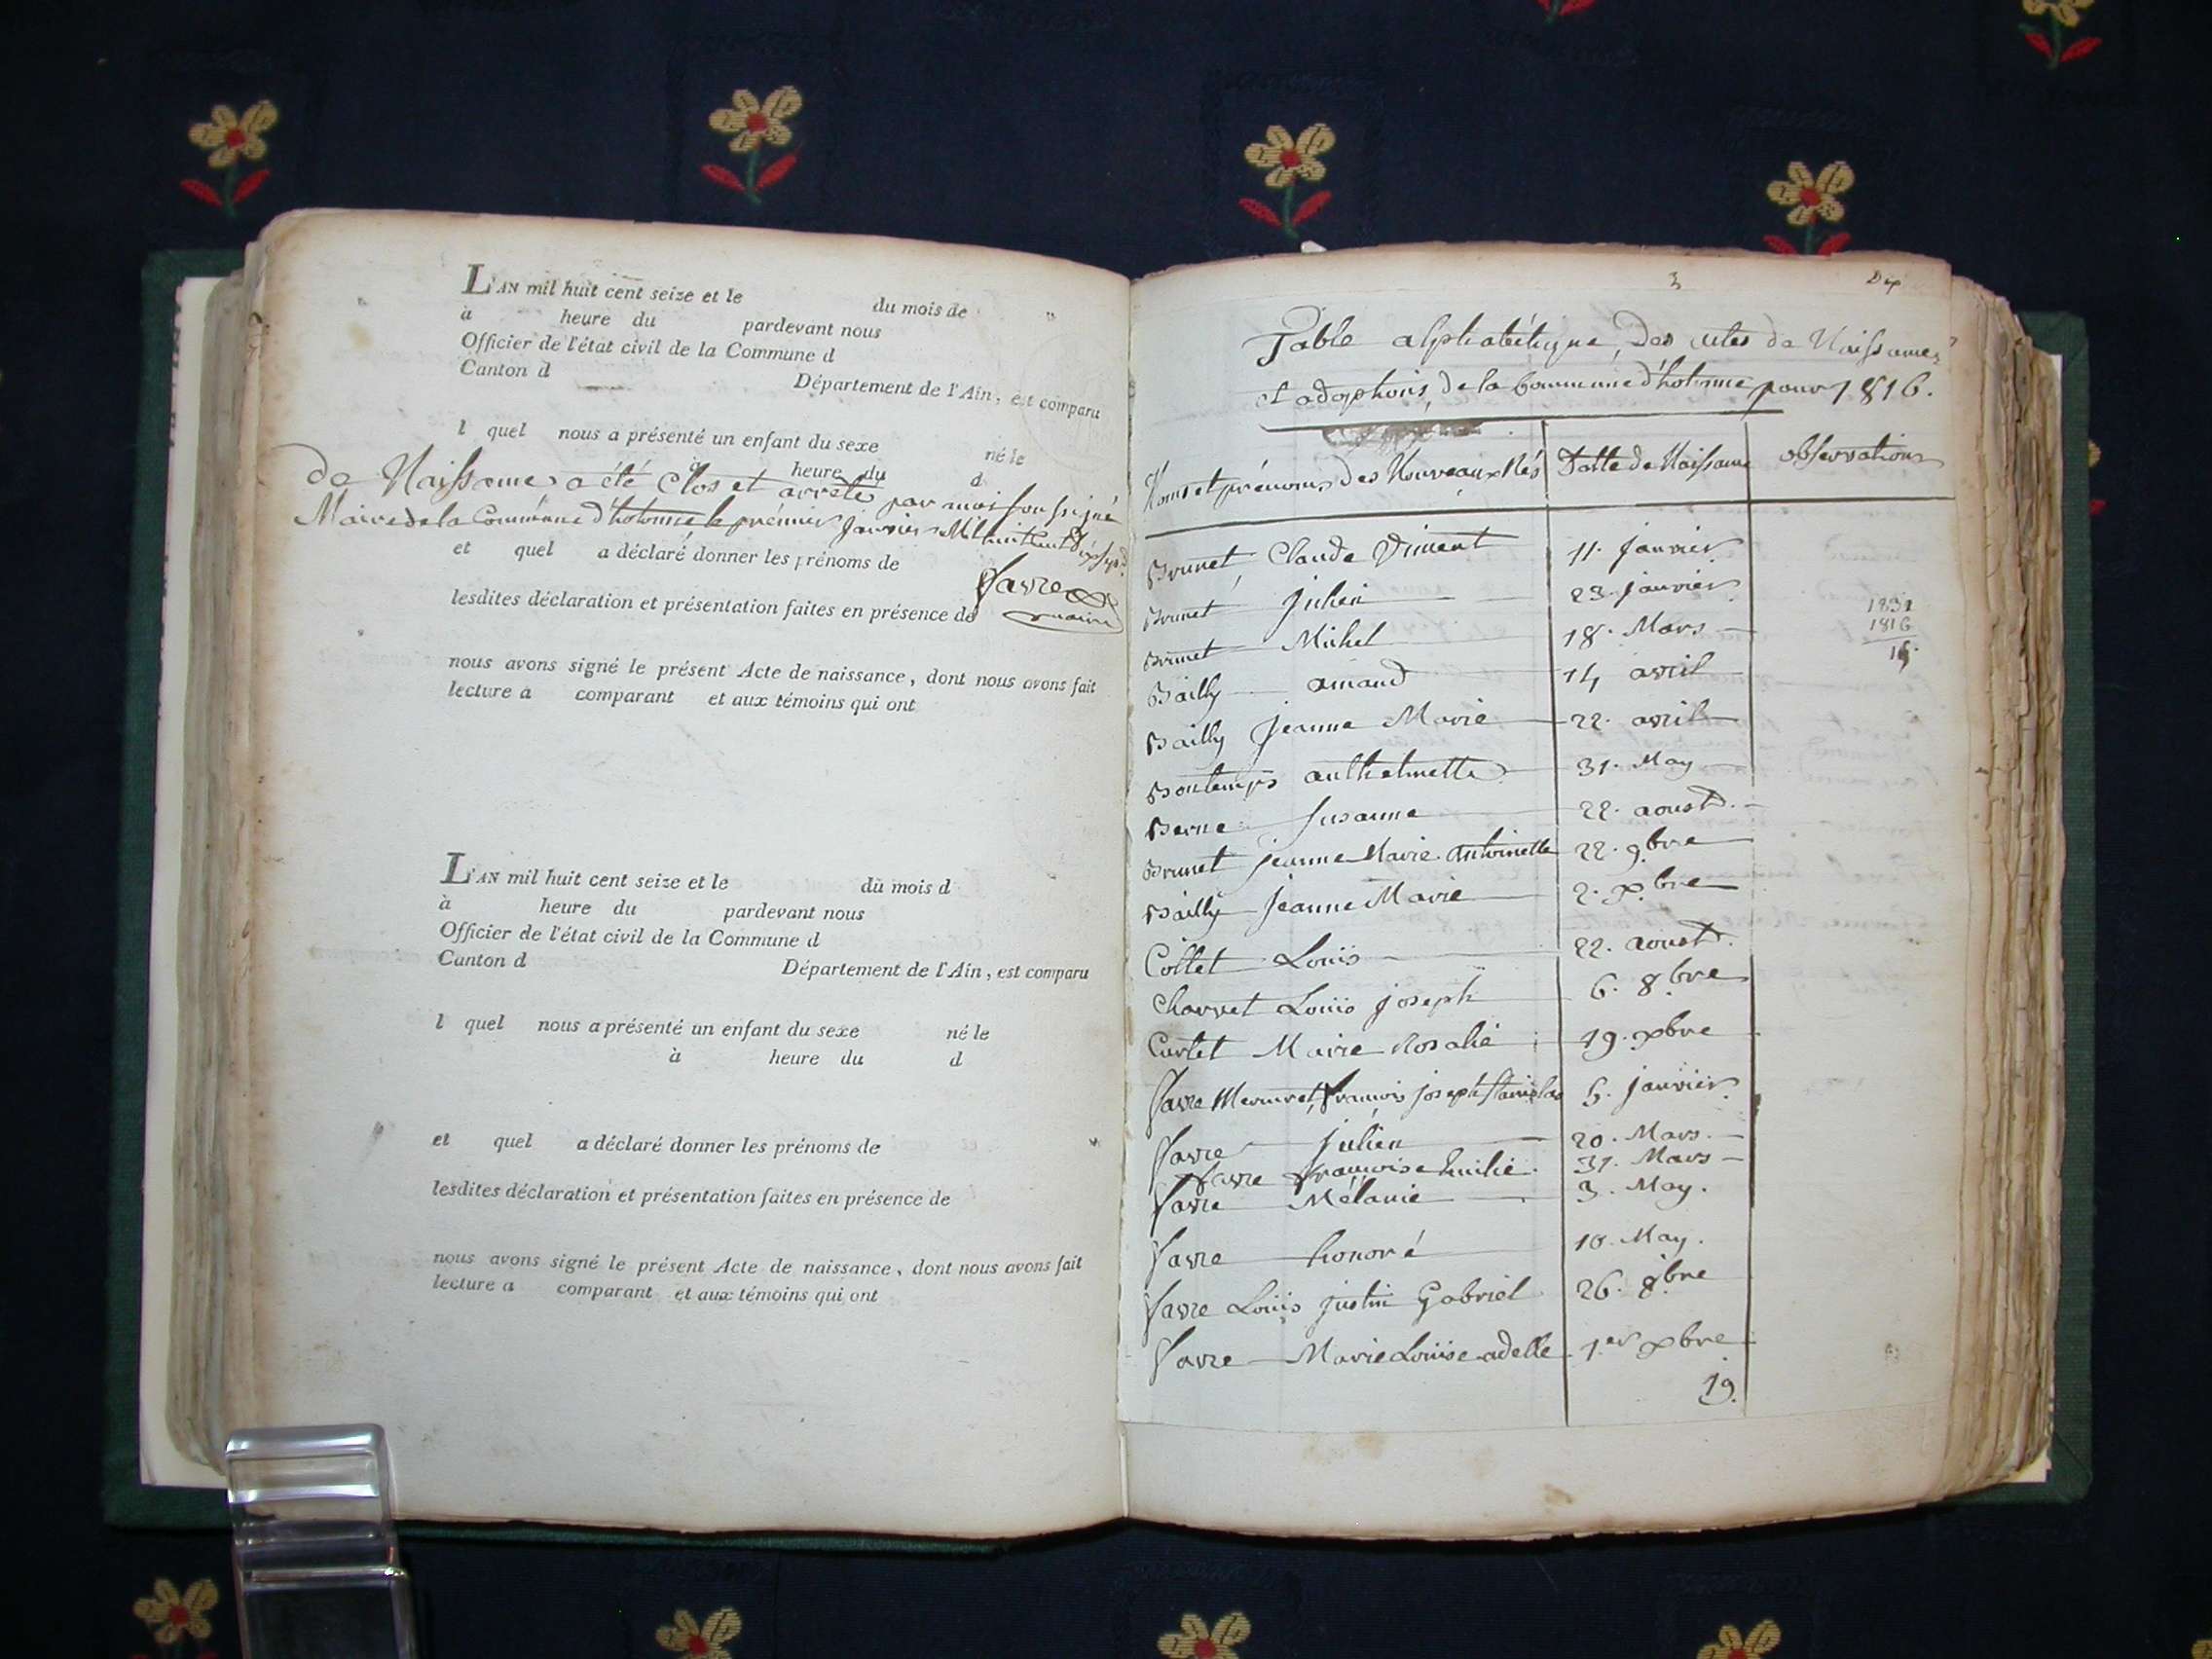 L'AN mil huit cent seize et le du mois de
à heure du pardevant nous
Officier de l'état civil de la Commune d
Canton d Département de l'Ain, est comparu
l quel nous a présenté un enfant du sexe né le
à heure du d
de Naissance a été Clos et arreté par moi soussigné
Maire de la Commune d'hotonne le prémier janvier Mil huit cent dix sept
et quel a déclaré donner les prénoms de
favre
maire
lesdites déclaration et présentation faites en présence de
nous avons signé le présent Acte de naissance, dont nous avons fait
lecture a comparant et aux témoins qui ont
L'AN mil huit cent seize et le du mois d
à heure du pardevant nous
Officier de l'état civil de la Commune d
Canton d Département de l'Ain, est comparu
l quel nous a présenté un enfant du sexe né le
à heure du d
et quel a déclaré donner les prénoms de
lesdites déclaration et présentation faites en présence de
nous avons signé le présent Acte de naissance, dont nous avons fait
lecture a comparant et aux témoins qui ont
3 Dix
Table alphabétique, des actes de Naissances
et adoptions, de la Commune d'hotonne pour 1816.
Noms et prénoms des Nouveaux Nés Datte de Naissance observations
Brunet Claude Viment 11. janvier
Brunet Julien 23. janvier
Brunet Michel 18. Mars
Bailly amand 14 avril
Bailly Jeanne Marie 22. avril
Bontemps anthelmette 31. May
Berne Susanne 22. aoust
Brunet jeanne Marie antoinette 22. 9bre
Bailly Jeanne Marie 2. xbre
Collet Louis 22. aoust
Charvet Louis joseph 6. 8bre
Curtet Marie Rosalie 19. xbre
favre Mermet, françois joseph stanislas 5. janvier
favre julien 20. Mars
favre françoise Emilie 31. Mars
favre Mélanie 3. May.
favre honoré 10. May.
favre Louis justin Gabriel 26. 8bre
favre Marie Louise adelle 1er xbre
19.
1831
1816
15